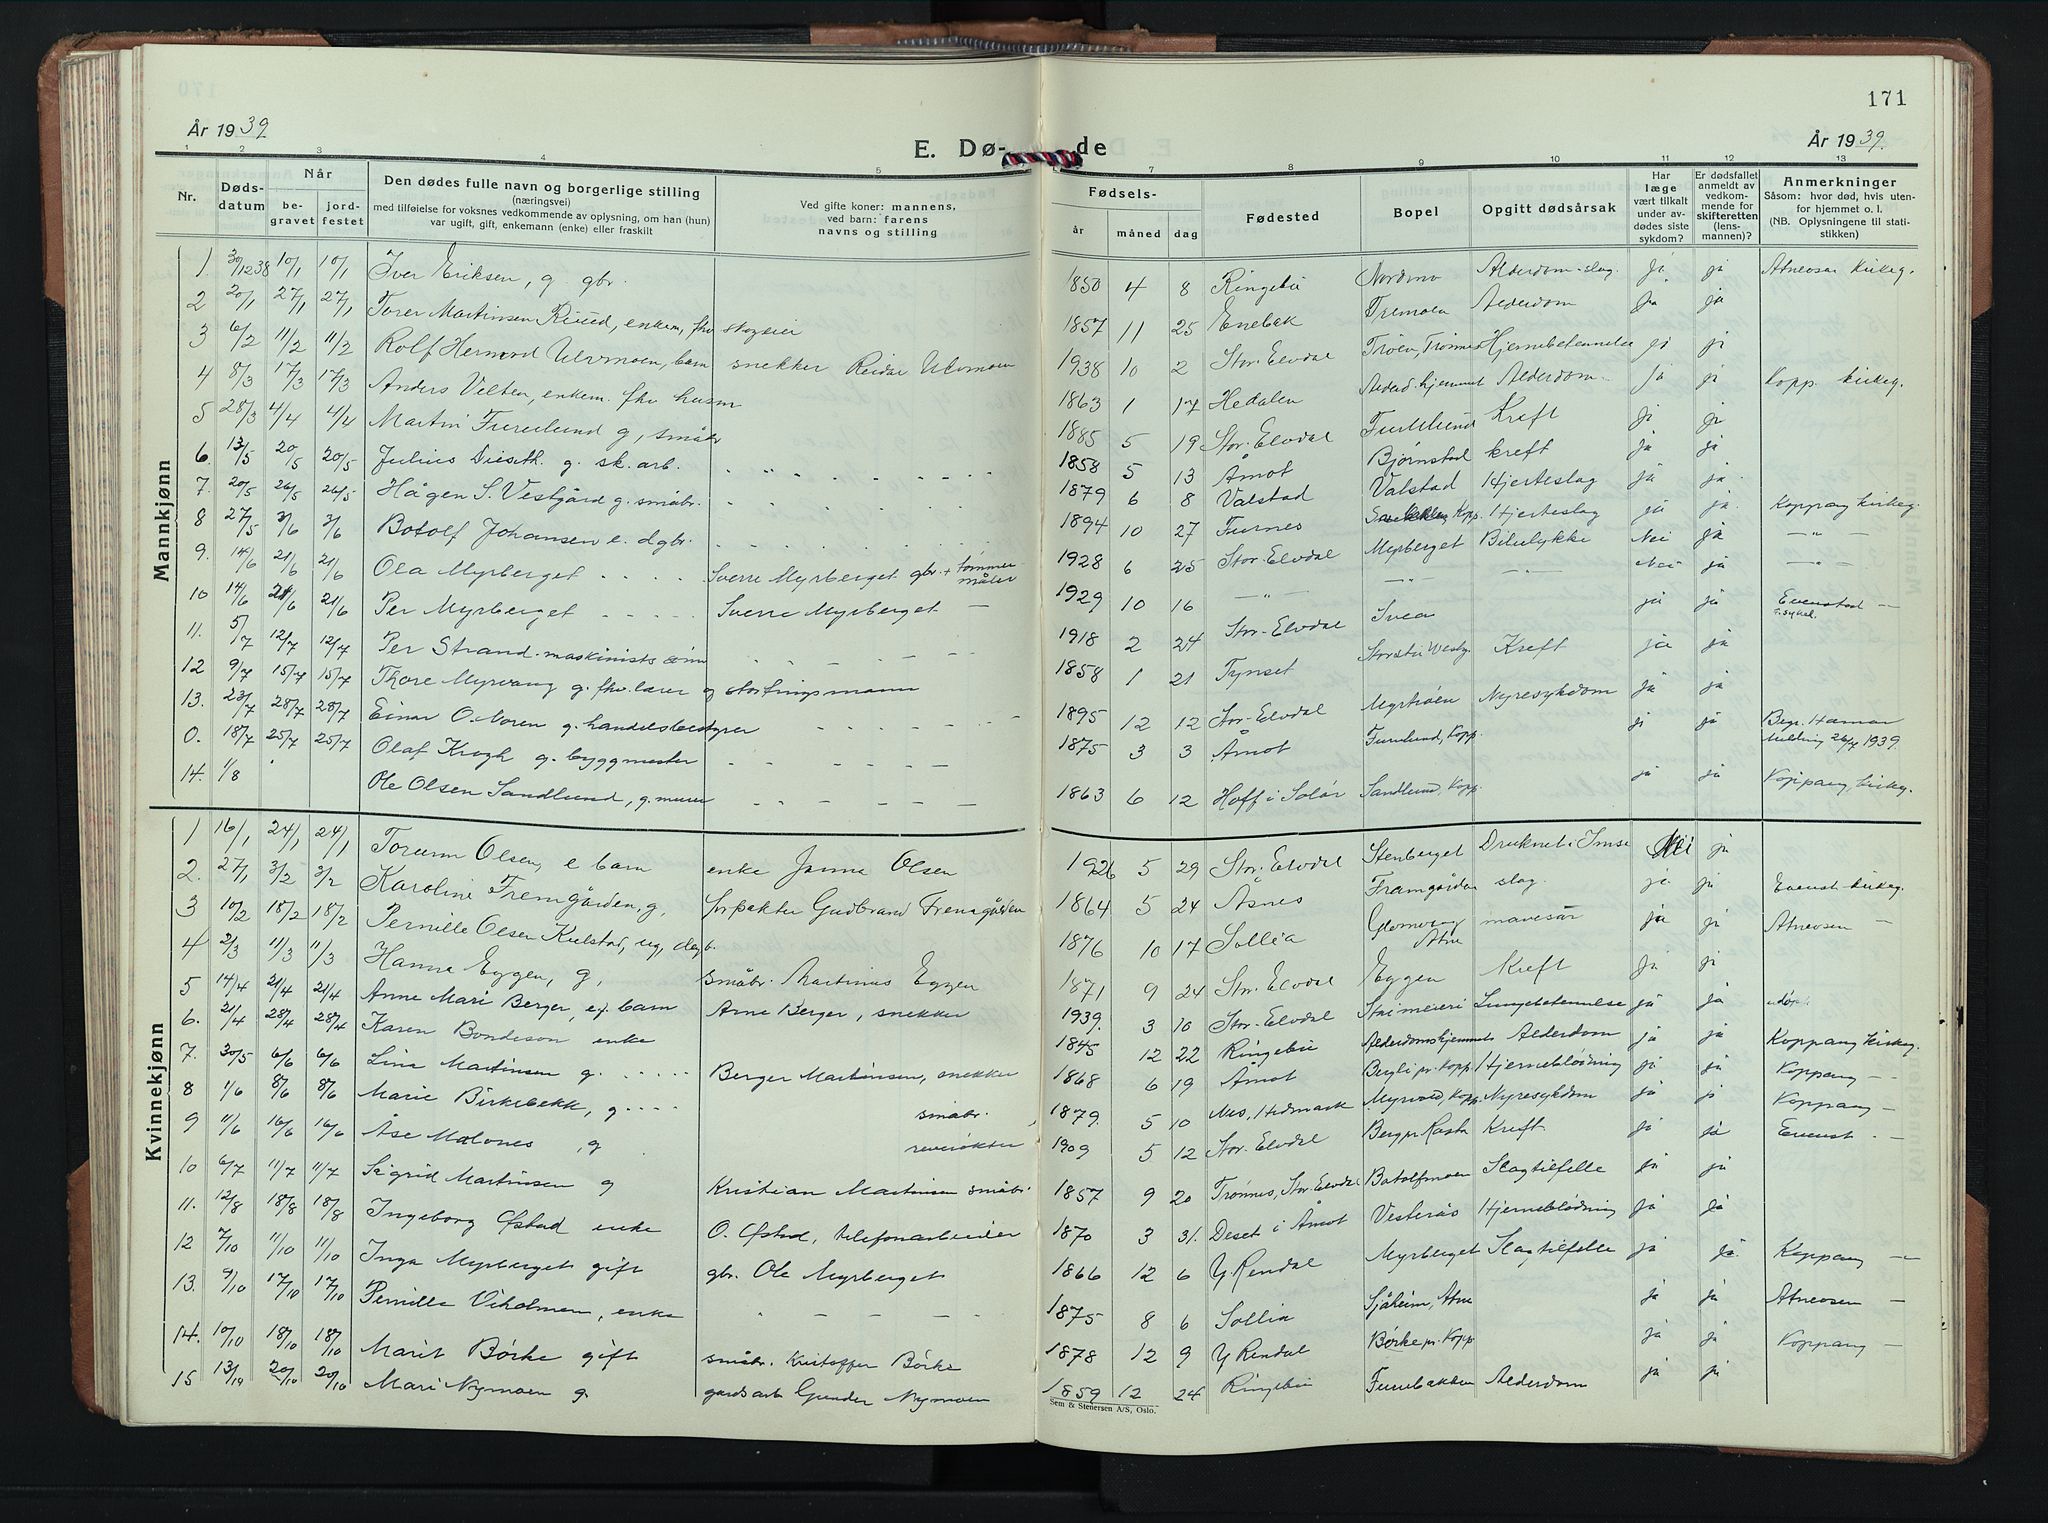 171
År 1939
E. Dø-
de
År 1939.
1 2 3 4 5 7 8 9 10 11 12 13
Nr.
Døds-
datum
Når
be-
gravet
jord-
festet
Den dødes fulle navn og borgerlige stilling
(næringsvei)
med tilføielse for voksnes vedkommende av oplysning, om han (hun)
var ugift, gift, enkemann (enke) eller fraskilt
Ved gifte koner: mannens,
ved barn: farens
navns og stilling
Fødsels-
år måned dag
Fødested
Bopel
Opgitt dødsårsak
Har
læge
vært tilkalt
under av-
dødes siste
sykdom?
Er dødsfallet
anmeldt av
vedkom-
mende for
skifteretten
(lens-
mannen)?
Anmerkninger
Såsom: hvor død, hvis uten-
for hjemmet o. l.
(NB. Oplysningene til stati-
stikken)
Mannkjønn
1. 30/12 38 10/1 10/1 Iver Eriksen, g. gbr. 1850 4 8 Ringebu Nordmo Alderdom-slag. ja ja Atneosen kirkeg.
2 20/1 27/1 27/1 Torer Martinsen Ruud, enkem, fhv stogeier 1857 11 25 Enebak Tremoen Alderdom ja ja
3 6/2 11/2 11/2 Rolf Hermod Ulvmoen, barn snekker Reidar Ulvmoen 1938 10 2 Stor-Elvdal Troen, Trønnes Hjernebetennelse ja ja
4 8/3 17/3 17/3 Anders Velten, enkem. fhv. husm 1863 1 17 Hedalen Alderd.hjemmet Alderdom ja ja Kopp. kirkeg.
5 28/3 4/4 4/4 Martin Furulund g, småbr 1885 5 19 Stor-Elvdal Furulund Kreft ja ja
6. 13/5 20/5 20/5 Julius Dieseth. g. sk. arb. 1858 5 13 Åmot Bjørnstad kreft ja ja
7. 20/5 26/5 26/5 Hågen S. Vestgård g. småbr. 1879 6 8 Valstad Valstad Hjerteslag ja ja
8 27/5 3/6 3/6 Botolf Johansen e. dgbr. 1894 10 27 Furnes Kopp. Hjerteslag ja ja. Koppang kirkeg.
9. 14/6 21/6 21/6 Ola Myrberget Sverre Myrberget gbr. + tømmer-
måler 1928 6 25 Stor-Elvdal Myrberget Bilulykke Nei ja — " —
10 14/6 21/6 21/6 Per Myrberget Sverre Myrberget — 1929 10 16 — " — — " — — " — Nei ja — " —
11. 5/7 12/7 12/7 Per Strand-maskinists sønn 1918 2 24 Stor-Elvdal Svea ja ja Evenstad —
12 9/7 15/7 15/7 Thore Myrvang g. fhv. lærer og stortingsmann 1858 1 21 Tynset Kreft ja ja
13. 23/7 28/7 28/7 Einar O. Noren g. handelsbestyrer 1895 12 12 Stor-Elvdal Myrtrøen Nyresykdom ja ja
0. 18/7 25/7 25/7 Olaf Krogh g. byggmester 1875 3 3 Åmot Furulund, Kopp. ja ja Begr. Hamar
Melding 26/7 1939.
14. 1/8 Ole Olsen Sandlund, g. murer 1863 6 12 Hoff i Solør Sandlund, Kopp. ja ja Koppang, kirkeg.
Kvinnekjønn
1 16/1 24/1 24/1 Torunn Olsen, e barn enke Janna Olsen 1926 5 29 Stor-Elvdal Stenberget Druknet i Imse Nei ja
2. 27/1 3/2 3/2 Karoline Fremgården, g, forpakter Gudbrand Fremgården 1864 5 24 Åsnes Framgården slag. ja ja Evenst. kirkeg.
3 10/2 18/2 18/2 Pernille Olsen Kulstad, ug, dagb. 1876 10 17 Sollia Glomvang
Atne mavesår ja ja Atneosen —
4 2/3 11/3 11/3 Hanna Eggen, g, småbr. Martinus Eggen 1871 9 24 Stor-Elvdal Eggen Kreft ja ja
5 14/4 21/4 21/4 Anne Mari Berger, e. barn Arne Berger, snekker 1939. 3 10 Stor-Elvdal Stai meieri Lungebetennelse ja ja udøpt
6. 21/4 28/4 28/4 Karen Bondeson enke 1845 12 22 Ringebu Alderdomshjemmet Alderdom ja ja Koppang kirkeg.
7. 30/5 6/6 6/6 Lina Martinsen g. Berger Martinsen, snekker 1868 6 19 Åmot Bergli pr. Kopp. Hjerneblødning ja ja Koppang —
8 1/6 8/6 8/6 Marie Birkebekk, g. småbr. 1879. 5 10 Nes, Hedmark Myrvold, Kopp. Nyresykdom ja ja Koppang —
9 11/6 16/6 16/6 Åse Malones, g revirøkter 1909 5 12 Stor-Elvdal Berger Rasta Kreft ja ja Evenst. —
10 6/7 11/7 11/7 Sigrid Martinsen g Kristian Martinsen småbr. 1857 9 20 Trønnes, Stor Elvdal Botolfmoen Slagtilfelle ja ja
11. 12/8 18/8 18/8 Ingeborg Øfstad enke O. Øfstad, telefonarbeider 1870 3 31. Deset i Åmot Vesterås Hjerneblødning ja ja
12 7/10 11/10 11/10 Inga Myrberget gift gbr. Ole Myrberget 1866 12 6 Y Rendal Myrberget Slagtilfelle ja ja. Koppang —
13. 9/10 17/10 17/10 Pernille Viholmen, enke 1875 8 6 Sollia Sjåheim, Atne ja ja Atneosen —
14. 10/10 18/10 18/10 Marit Børke gift småbr. Kristoffer Børke 1878 12 9 Y Rendal Børke pr. Kopp ja ja Koppang —
15 13/10 20/10 20/10 Mari Nymoen g. gårdsarb Gunder Nymoen 1859 12 24 Ringebu Furubakken Alderdom ja ja
Sem & Stenersen A/S, Oslo.